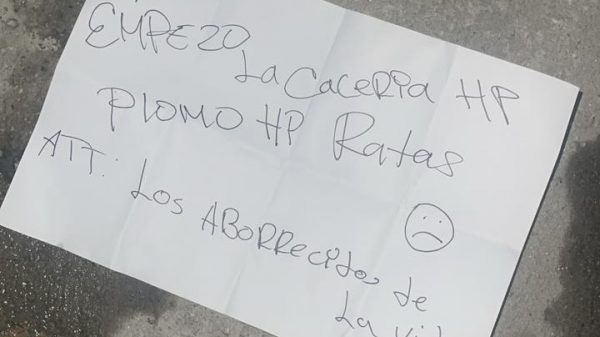 EMPEZO
La CaCeRia HP
PlOMO HP Ratas
ATT: Los ABORRecidos de
La